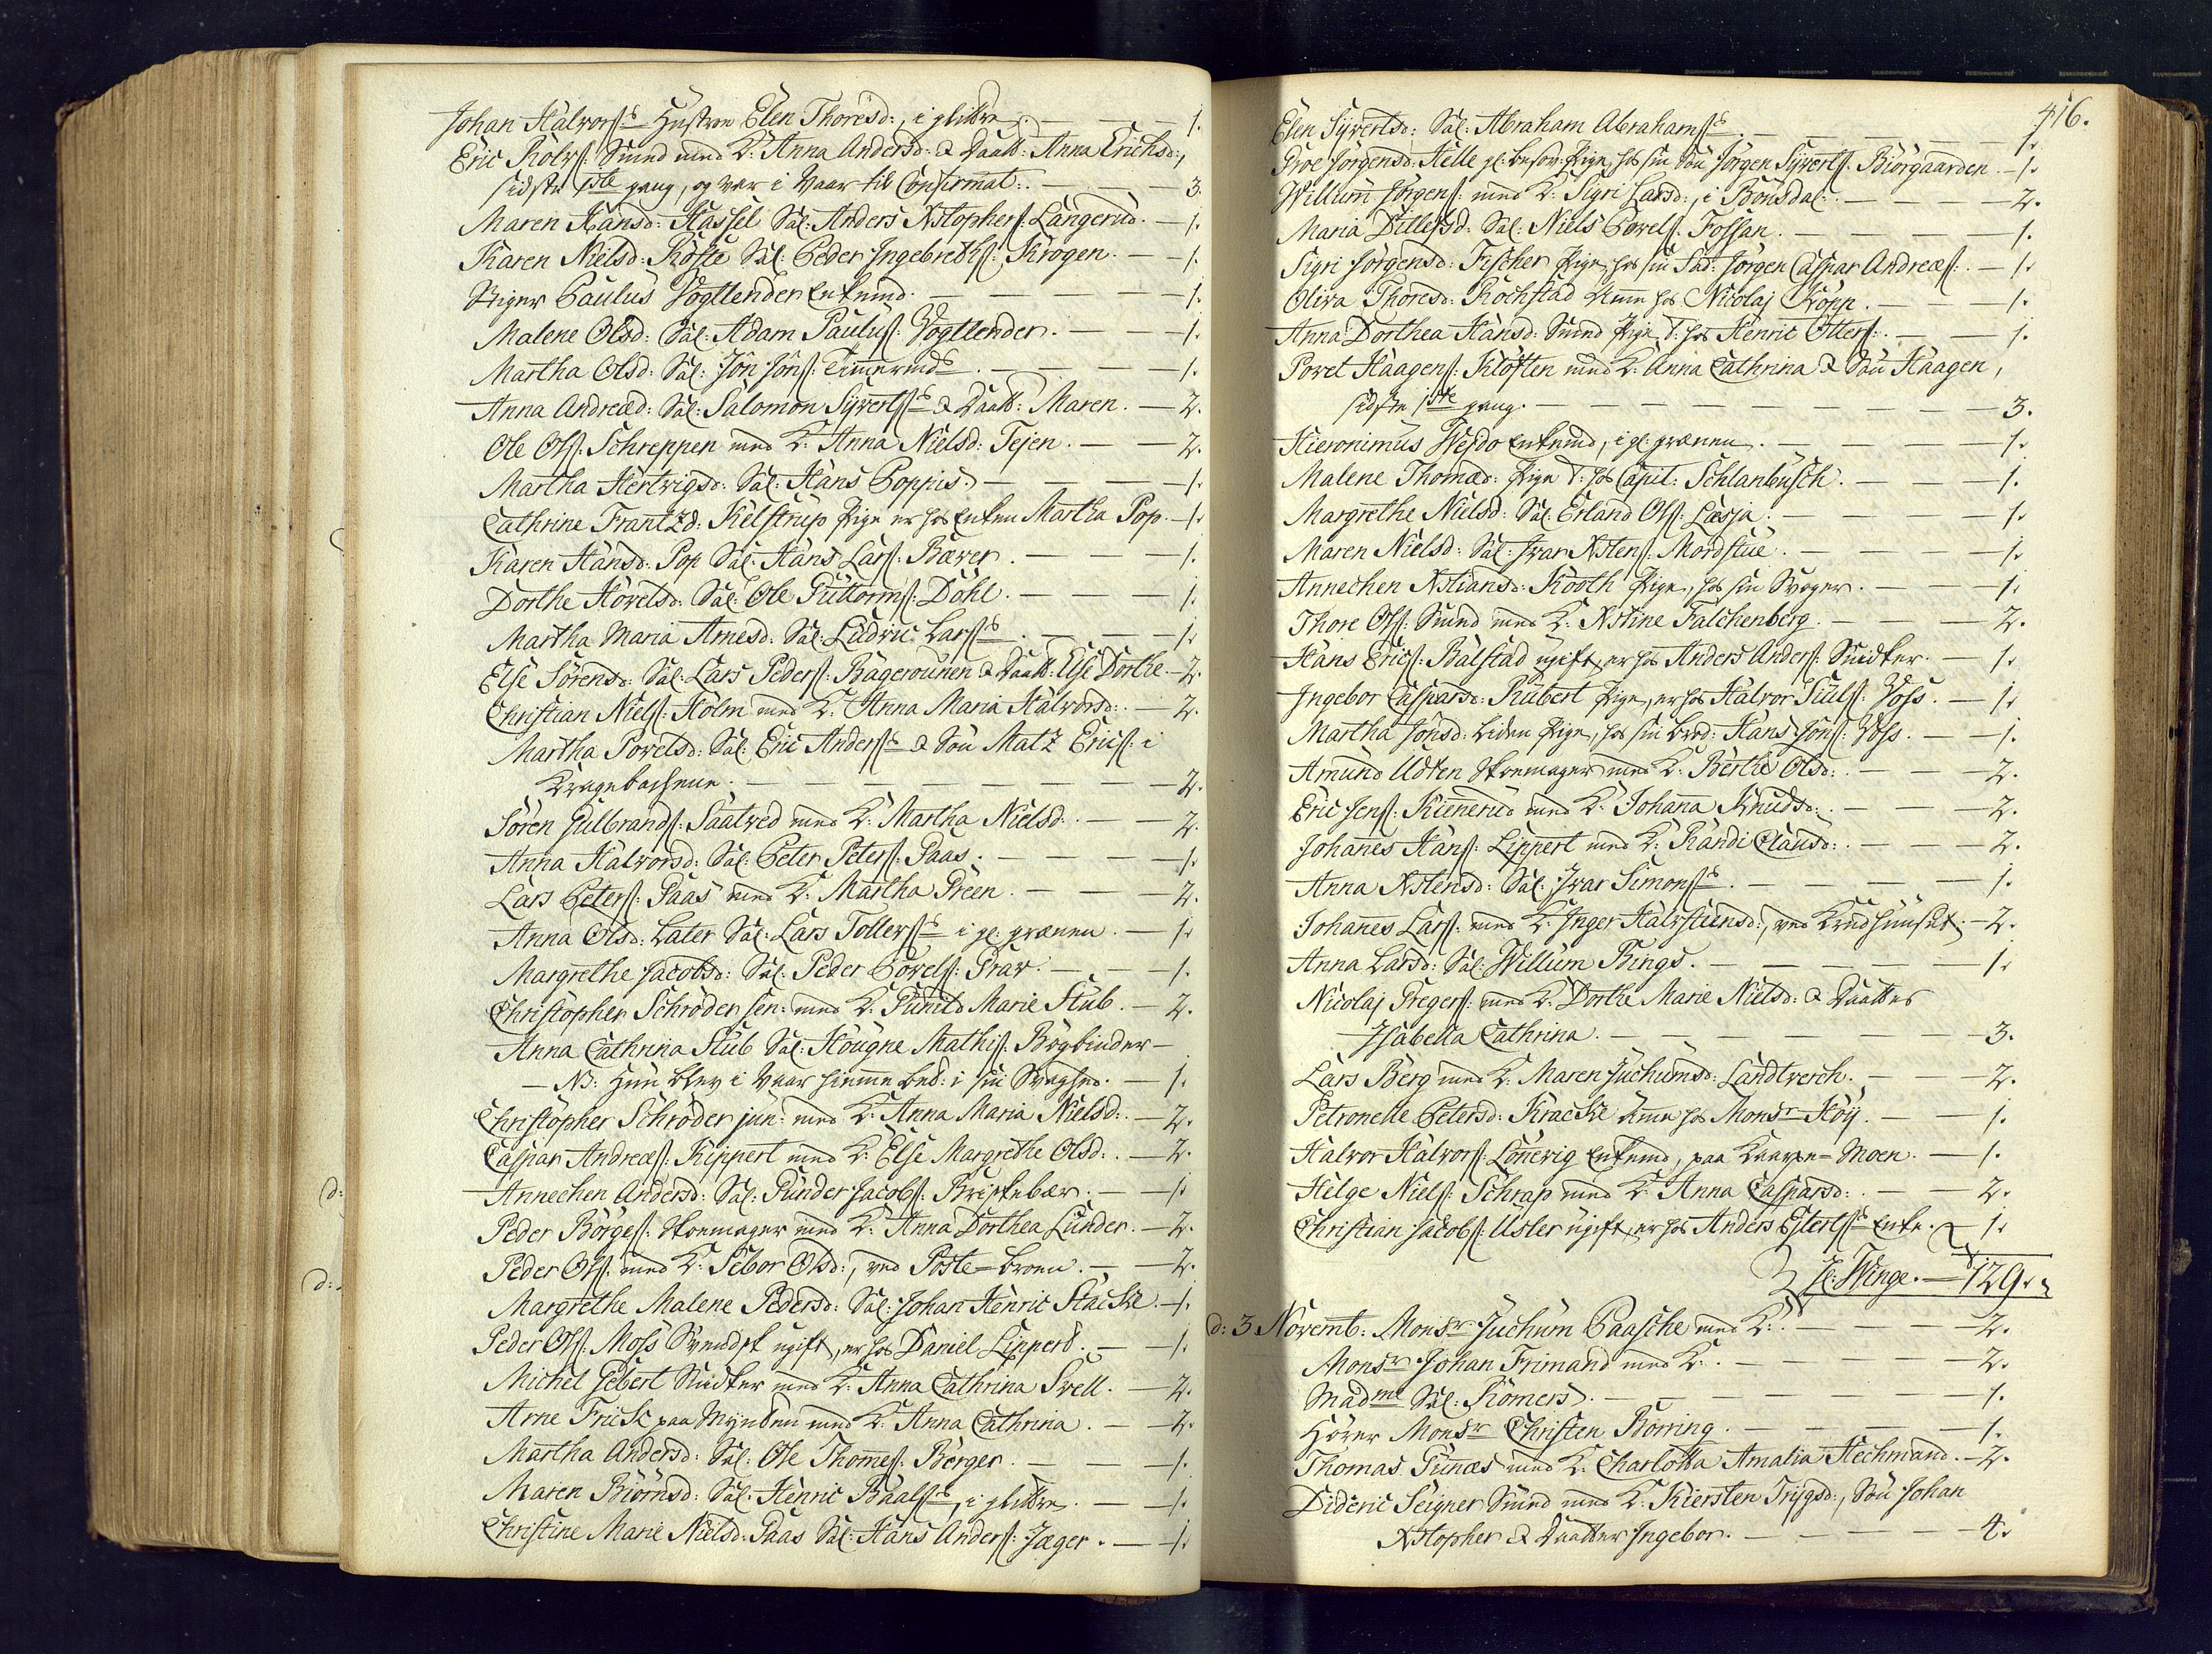 Johan Halvorss: Hustrue Elen Thoresd:, i glitre. — — 1.
Eric Rolvs: Smed med K: Anna Andersd: & Daatt: Anna Erichsd:,
sidste 1ste gang, og var i Vaar til Confirmat:. — — 3.
Maren Hansd: Hassel Sal: Anders Xstophers: Langerud. — 1.
Karen Nielsd: Röste Sal: Peder Ingebreths: Krogen. — 1.
Stiger Paulus Vogtlender Enkemd. — — 1.
Malene Olsd: Sal: Adam Pauluss: Vogtlender. — — 1.
Martha Olsd: Sal: Jon Jöns: Timermds. — — 1.
Anna Andreæd: Sal: Salomon Syvertss & Daatt: Maren. — 2.
Ole Ols: Schreppen med K: Anna Nielsd: Tejen. — — 2.
Martha Hertvigsd: Sal: Hans Poppis. — — 1.
Cathrine Frantzd: Kelstrup Pige er hos Enken Martha Pop. — 1.
Karen Hansd: Pop Sal: Hans Lars: Bæver. — — 1.
Dorthe Hovelsd: Sal: Ole Guttorms: Döhl. — — 1.
Martha Maria Arnesd: Sal: Ludvic Larss. — — 1.
Else Sörensd: Sal: Lars Peders: Bagerounen & Daatt: Else Dorthe. — 2.
Christian Niels: Holm med K: Anna Maria Halvorsd:. — 2.
Martha Povelsd: Sal: Eric Anderss & Sön Matz Erics: i
Kragebachene. — — 2.
Sören Gulbrands: Saatved med K: Martha Nielsd:. — — 2.
Anna Halvorsd: Sal: Peter Peters: Paas. — — 1.
Lars Peters: Paas med K: Martha Preen. — — 2.
Anna Olsd: Later Sal: Lars Tollerss i gl: grænen. — 1.
Margrethe Jacobsd: Sal: Peder Povels: Prav. — — 1.
Christopher Schröder sen: med K: Gunild Marie Stub. — 2.
Anna Cathrina Stub Sal: Hougne Mathis: Bogbinder —
— NB: Hun blev i Vaar hiemme bed: i sin Svaghed. — 1.
Christopher Schröder jun: med K: Anna Maria Nielsd:. — 2.
Caspar Andreæs: Rippert med K: Else Margrethe Olsd:. — 2.
Annechen Andersd: Sal: Gunder Jacobs: Briskebær. — 1.
Peder Börges: Skoemager med K: Anna Dorthea Lunder. — 2.
Peder Ols: med K: Sebor Olsd:, ved Poste-broen. — 2.
Margrethe Malene Pedersd: Sal: Johan Henric Stacke. — 1.
Peder Ols: Moss Svendsk ugift, er hos Daniel Lippert. — 1.
Michel Gebert Snidker med K: Anna Cathrina Svell. — 2.
Arne Frick paa Mynden med K: Anna Cathrina. — 2.
Martha Andersd: Sal: Ole Thomes: Berger. — — 1.
Maren Biörnsd: Sal: Henric Baalss, i glitre. — — 1.
Christine Marie Nielsd: Paas Sal: Hans Anders: Jæger. — 1.
d:
d:
416.
Elen Syvertsd: Sal: Abraham Abrahamss. — — 1.
Groe Jörgensd: Helle gl: besov: Pige, hos sin Sön Jörgen Syverts: Biörgaarden. — 1.
Willum Jörgens: med K: Sigri Larsd:, i Bonsdal. — — 2.
Maria Ditlefsd: Sal: Niels Povels: Fossan. — — 1.
Sigri Jörgensd: Fischer Pige, hos sin Fad: Jörgen Caspar Andreæs:. — 1.
Oliva Thoresd: Rochstad Amme hos Nicolaj Kopp. — — 1.
Anna Dorthea Hansd: Smed Pige, T: hos Henric Otters:. — — 1.
Povel Haagens: Klöften med K: Anna Cathrina & Sön Haagen,
sidste 1ste gang. — — 3.
Hieronimus Wejdo Enkemd, i gl: grænen. — — 1.
Malene Thomæd: Pige T: hos Capit: Schlanbusch. — — 1.
Margrethe Nielsd: Sal: Erland Ols: Læsja. — — 1.
Maren Nielsd: Sal: Ivar Xstens: Mordstue. — — 1.
Annechen Xstiansd: Kooth Pige, hos sin Svoger. — — 1.
Thore Ols: Smed med K: Xstine Falchenberg. — — 2.
Hans Erics: Balstad ugift, er hos Anders Anders: Snidker. — 1.
Ingebor Caspard: Rubert Pige, er hos Halvor Juls: Voss. — 1.
Martha Jonsd: Liden Pige, hos sin Brod: Hans Jöns: Voss. — 1.
Amund Udten Skoemager med K: Berthe Olsd:. — — 2.
Eric Jens: Kiennerud med K: Johanna Knudsd:. — — 2.
Johannes Hans: Lippert med K: Randi Clausd:. — — 2.
Anna Xstensd: Sal: Ivar Simonss. — — 1.
Johannes Lars: med K: Inger Halvstensd:, ved Krudhuuset. — 2.
Anna Larsd: Sal: Willum Bings. — — 1.
Nicolaj Gregers: med K: Dorthe Marie Nielsd: & Daatter
Isabella Cathrina. — — 3.
Lars Berg med K: Maren Juchumsd: Landtverch. — — 2.
Petronelle Petersd: Kracke Amme hos Monsr Höy. — — 1.
Halvor Halvors: Lonnevig Enkemd, paa Kaarpe-Moen. — 1.
Helge Niels: Schrap med K: Anna Caspard:. — — 2.
Christian Jacobs: Usler ugift, er hos Anders Estertss Enke. — 1.
H: Winge. — 129.
d: 3 Novemb: Monsr Juchum Paasche med K:. — — 2.
Monsr Johan Frimand med K:. — — 2.
Madme Sal: Römers. — — 1.
Hörer Monsr Christen Borring. — — 1.
Thomas Punæs med K: Charlotta Amalia Hechmand. — 2.
Dideric Seigner Smed med K: Kiersten Trygsd:, Sön Johan
Xstopher & Daatter Ingebor. — — 4.